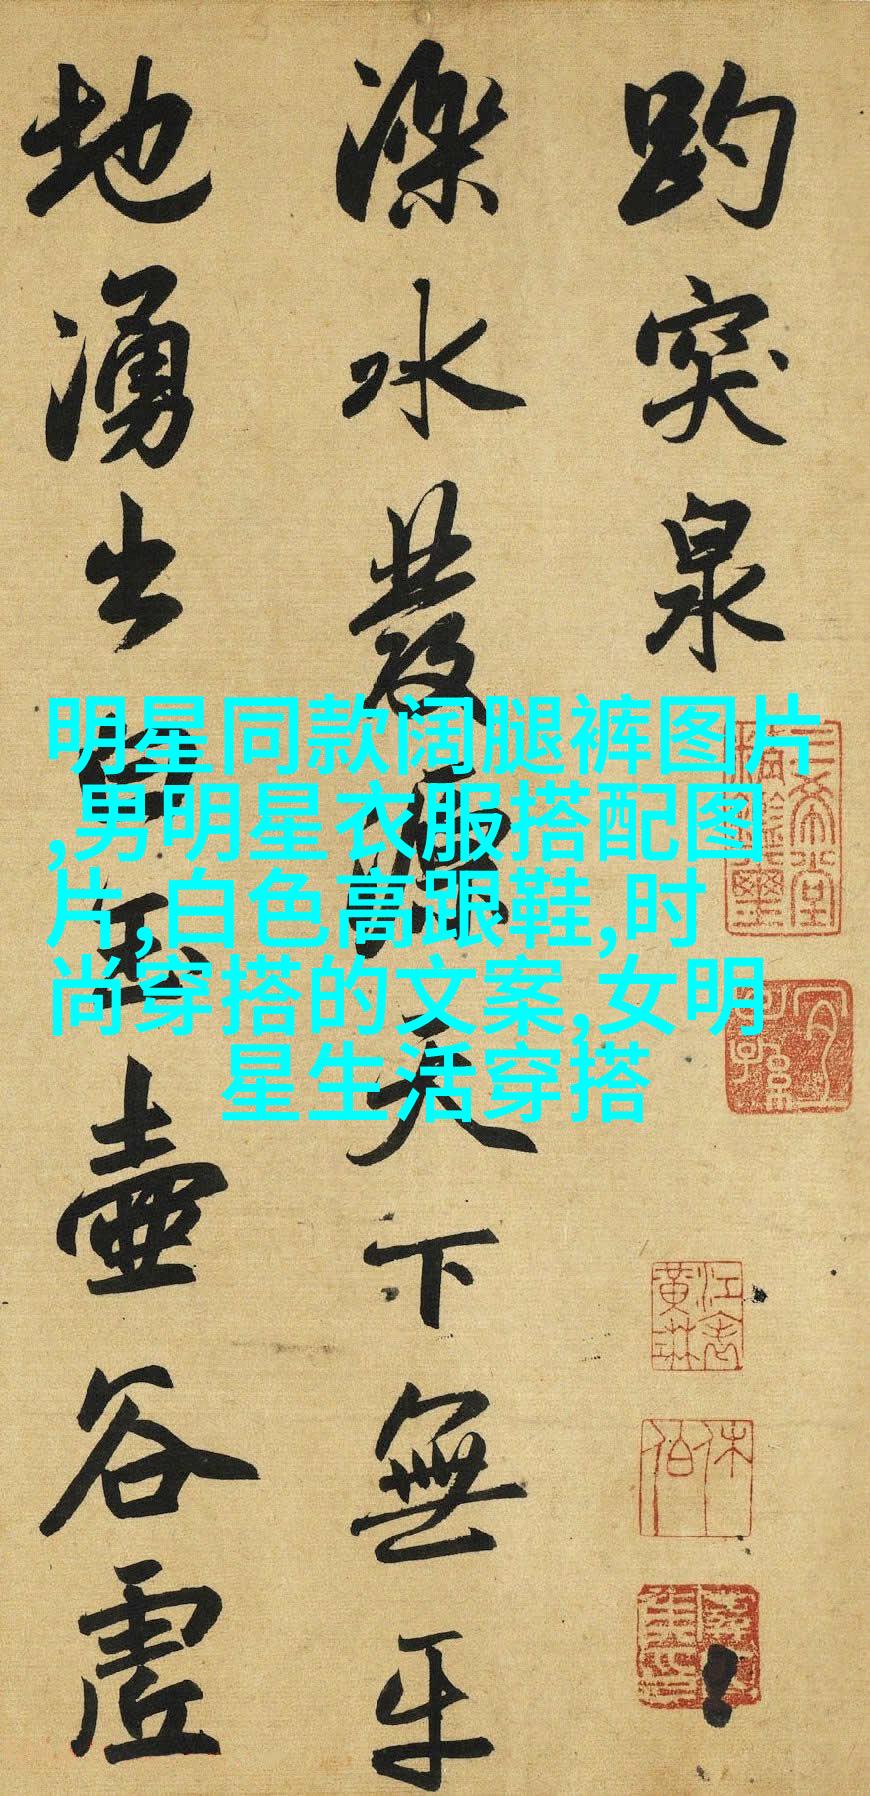 趵突泉
濼水發源天下無
地湧出白玉壺谷虛
明星同款阔腿裤图片
,男明星衣服搭配图
片,白色高跟鞋,时
尚穿搭的文案,女明
星生活穿搭